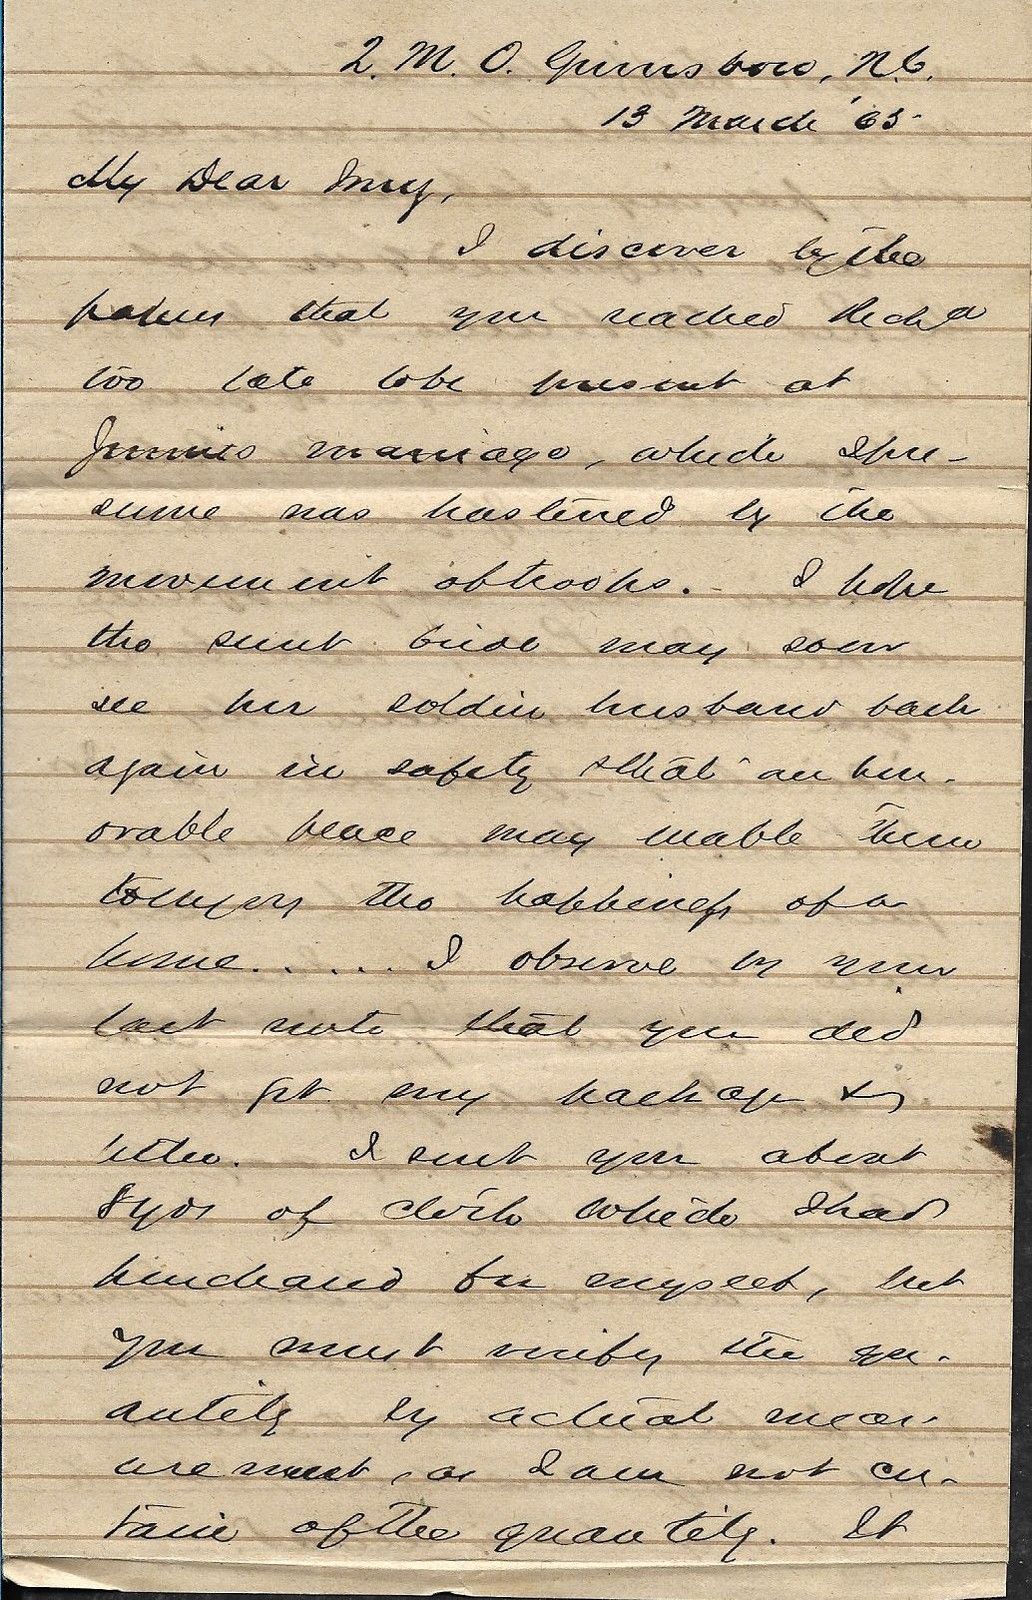 Q. M. O. Greensboro, N.C.
13 March '65
My Dear
I discover by the
papers that you reached Richd
too late to be present at
Jennies marriage, which I pre-
sume was hastened by the
movement of troops. - I hope
the sweet bride may soon
see her soldier husband back
again in safety & that an hon-
orable peace may enable them
to enjoy the happiness of a
home..... I observe by your
last note that you did
not get my package &
letter. I sent you about
8 yds of cloth which I had
purchased for myself, but
you must verify the qu-
antity by actual meas-
urement, as I am not cer-
tain of the quantity. It